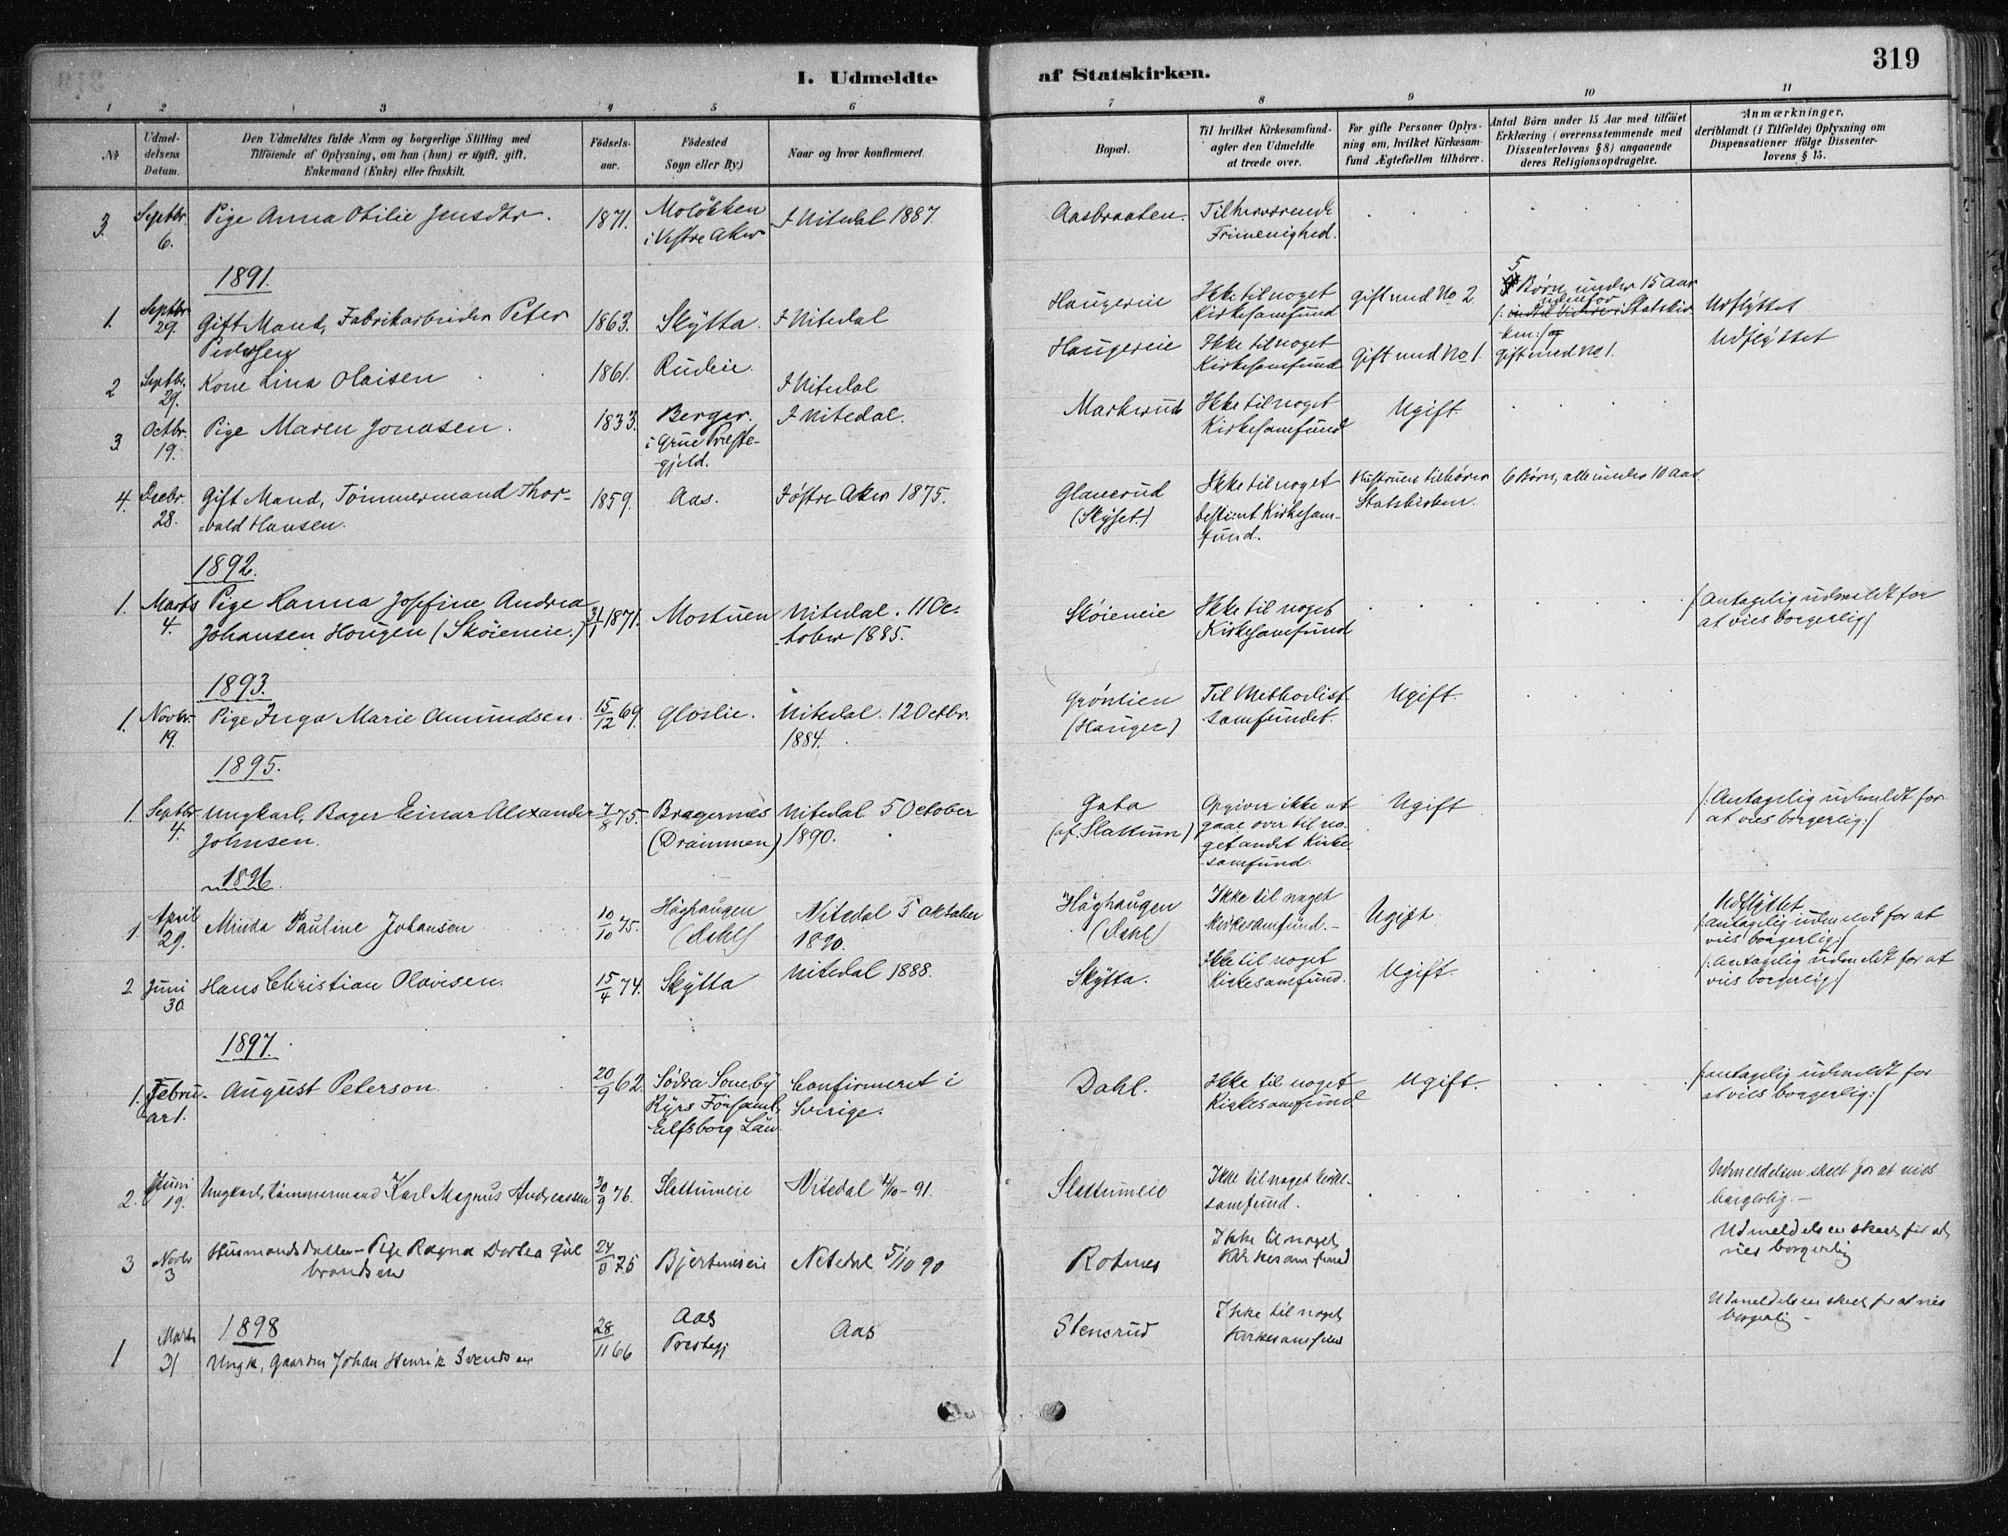 I. Udmeldte af Statskirken.
319
1 2 3 4 5 6 7 8 9 10 11
No
Udmel-
delsens
Datum.
Den Udmeldtes fulde Navn og borgerlige Stilling med
Tilföiende af Oplysning, om han (hun) er ugift, gift,
Enkemand (Enke) eller fraskilt.
Födsels-
aar.
Födested
Sogn eller By.)
Naar og hvor konfirmeret.
Bopæl.
Til hvilket Kirkesamfund-
agter den Udmeldte
at træde over.
For gifte Personer Oplys-
ning om, hvilket Kirkesam-
fund Ægtefællen tilhörer.
Antal Börn under 15 Aar med tilföiet
Erklæring (overensstemmende med
Dissenterlovens § 8) angaaende
deres Religionsopdragelse.
Anmærkninger,
deriblandt (i Tilfælde) Oplysning om
Dispensationer ifölge Dissenter-
lovens § 15.
3. Septbr. 6. Pige Anna Otilie Jensdtr. 1871. Moløkken i Vestre Aker I Nitedal 1887. Aasbraaten. Til herværende Frimenighed.
1891.
1. Septbr. 29. Gift Mand, Fabrikarbeider Peter Pedersen 1863. Skÿtta. I Nitedal Haugereie Ikke til noget Kirkesamfund Gift med No 2 5 Børn under 15 Aar udenfor Statskirken Udflÿttet
2 Septbr. 29. Kone Lina Olaisen 1861. Rudeie. I Nitedal Haugereie Ikke til noget Kirkesamfund Gift med No 1. Gift med No 1. Udflÿttet
3 Octbr. 19. Pige Maren Jonasen. 1833. Berger. i Grue Præste-gjeld. I Nitedal. Markerud Ikke til noget Kirkesamfund Ugift
4. Decbr. 28. Gift Mand, Tømmermand Thor-vald Hansen. 1859. Aas. I Østre Aker 1875. Glanerud (Skÿset.) Ikke til noget bestemt Kirkesam-fund. Hustruen tilhører Statskirken. 6 Børn, alle under 10 Aar
1892.
1. Marts 4. Pige Hanna Josefine Andrea Johansen Hougen (Skøieneie.) 31/1 1871. Mostuen Nitedal. 11 Oc-tober 1885. Skøieneie Ikke til noget Kirkesamfund (Antagelig udmeldt for at vies borgerlig)
1893.
1. Novbr. 19. Pige Inga Marie Amundsen. 15/12 69. Gloslie. Nitedal. 12 Octbr. 1884. Grønlien (Hauger) Til Methodist samfundet. Ugift.
1895.
1. Septbr. 4. Ungkarl, Bager Einar Alexander Johnsen. 7/8 75. Bragernæs (Drammen) Nitedal 5 October 1890. Gata (af Slattum) Opgiver ikke at gaae over til no-get andet Kirke-samfund. Ugift (: Antagelig udmeldt for at vies borgerlig:)
1896.
1. April 29. Minda Pauline Johansen 10/10 75. Häghaugen (Dahl) Nitedal 5 oktober 1890. Häghaugen (Dahl) Ikke til noget Kirkesamfund.- Ugift. Udflÿttet (Antagelig udmeldt for at vies borgerlig:)
2 Juni 30 Hans Christian Olavesen. 15/4 74. Skÿtta Nitedal 1888. Skÿtta. Ikke til noget Kirkesamfund. Ugift. (: Antagelig udmeldt for at vies borgerlig:)
1897.
1. Febru-art. August Peterson. 20/9 62. Södra Confirmeret i Sverige. Elfsborg Län Dahl. Ikke til noget Kirkesamfund Ugift. (: antagelig udmeldt for at vies borgerlig:)
2. Juni 19. Ungkarl, Tømmermand Karl Magnus Andreassen 76. Slattumeie Nitedal 4/10-91. Slattumeie Ikke til noget kirke-samfund. Udmeldelsen skeet for at vies borgerlig.-
3 Novbr 3 Husmandsdatter- Pige Ragna Dortea Gul brandsen 75 Bjertneseie Nitedal 5/10 90 Rotnes Ikke til noget Kirkesamfund Udmeldelsen skeet for at vies borgerlig
1898
1 Marts 31 Ungk, Gaardm Johan Henrik Svendsen 28/11 66 Aas Prestegj Aas Stensrud Ikke til noget Kirkesamfund Udmeldelsen skeet for at vies borgerlig -